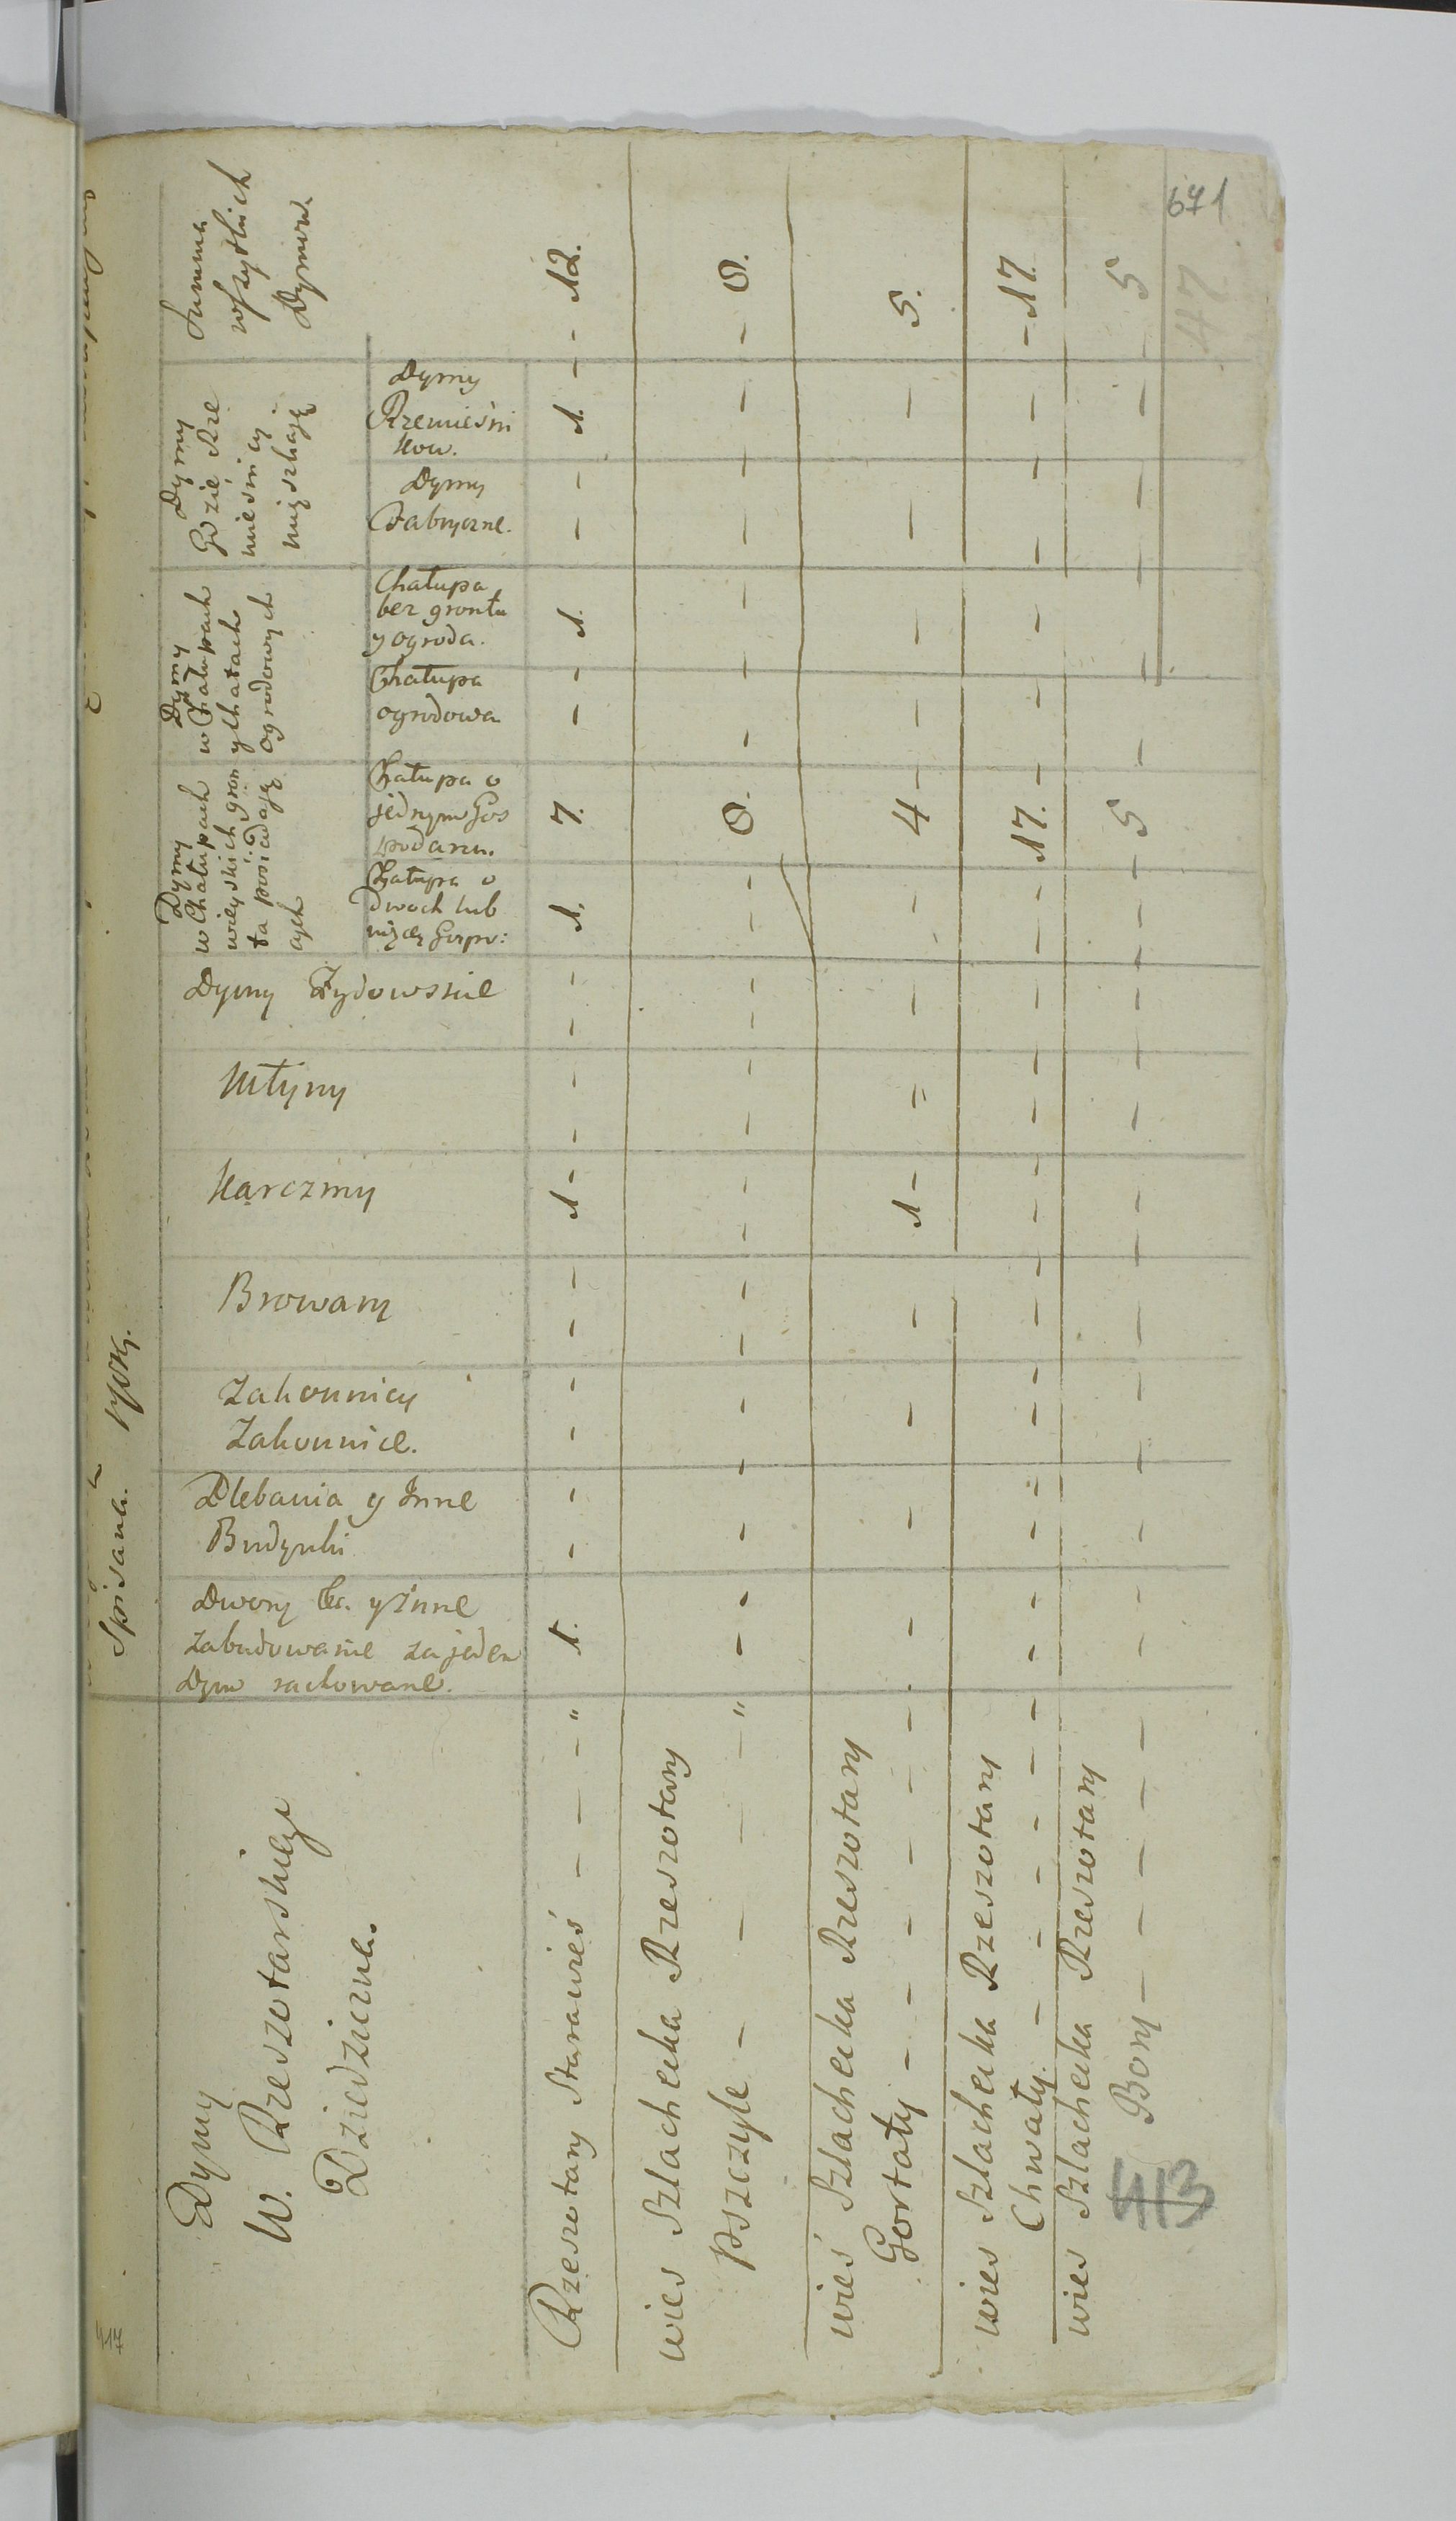 Spisane.
671
47
417
Dymy
W. Rzeszotarskiego
Dziedziczne.
Dwory &c. y Inne
zabudowanie za jeden
dym rachowane.
Plebania y Inne
Budynki
Zakonnicy
Zakonnice.
Browary
Karczmy
Młyny
Dymy Żydowskie
Dymy
w Chałupach
wieyskich gron
ta posiadają
cych
Chałupa o
dwoch lub
więcey Gospo:
Chałupa o
jednym Gos
podarzu.
Dymy
w Chałupach
y Chatach
ogrodowych
Chałupa
ogrodowa
Chałupa
bez grontu
y ogroda.
Dymy
Gdzie Rze
mieśnicy
mięszkają
Dymy
Fabryczne.
Dymy
Rzemieśni
kow.
Summa
wszystkich
Dymow.
Rzeszotary Starawieś - - - - " 1. - - - - - - 1 - - - - - 1. 7. - - 1. - - 1. - - 12.
wies Szlachecka Rzeszotary
Pszczyle - - - - " - - - - - - - - - - - - - - 8. - - - - - - - - 8.
wieś Szlachecka Rzeszotary
Gortaty - - - - - - - - - - 1 - = - - - 4 - - - - - 5.
wies Szlachecka Rzeszotary
Chwały. - - - - - - - - - - - - - - - - - - 17. - - - - - - - 17.
wies Szlachecka Rzeszotary
Bory - - - - - - - - - - - - - - - - - 5 - - - - - - 5
413